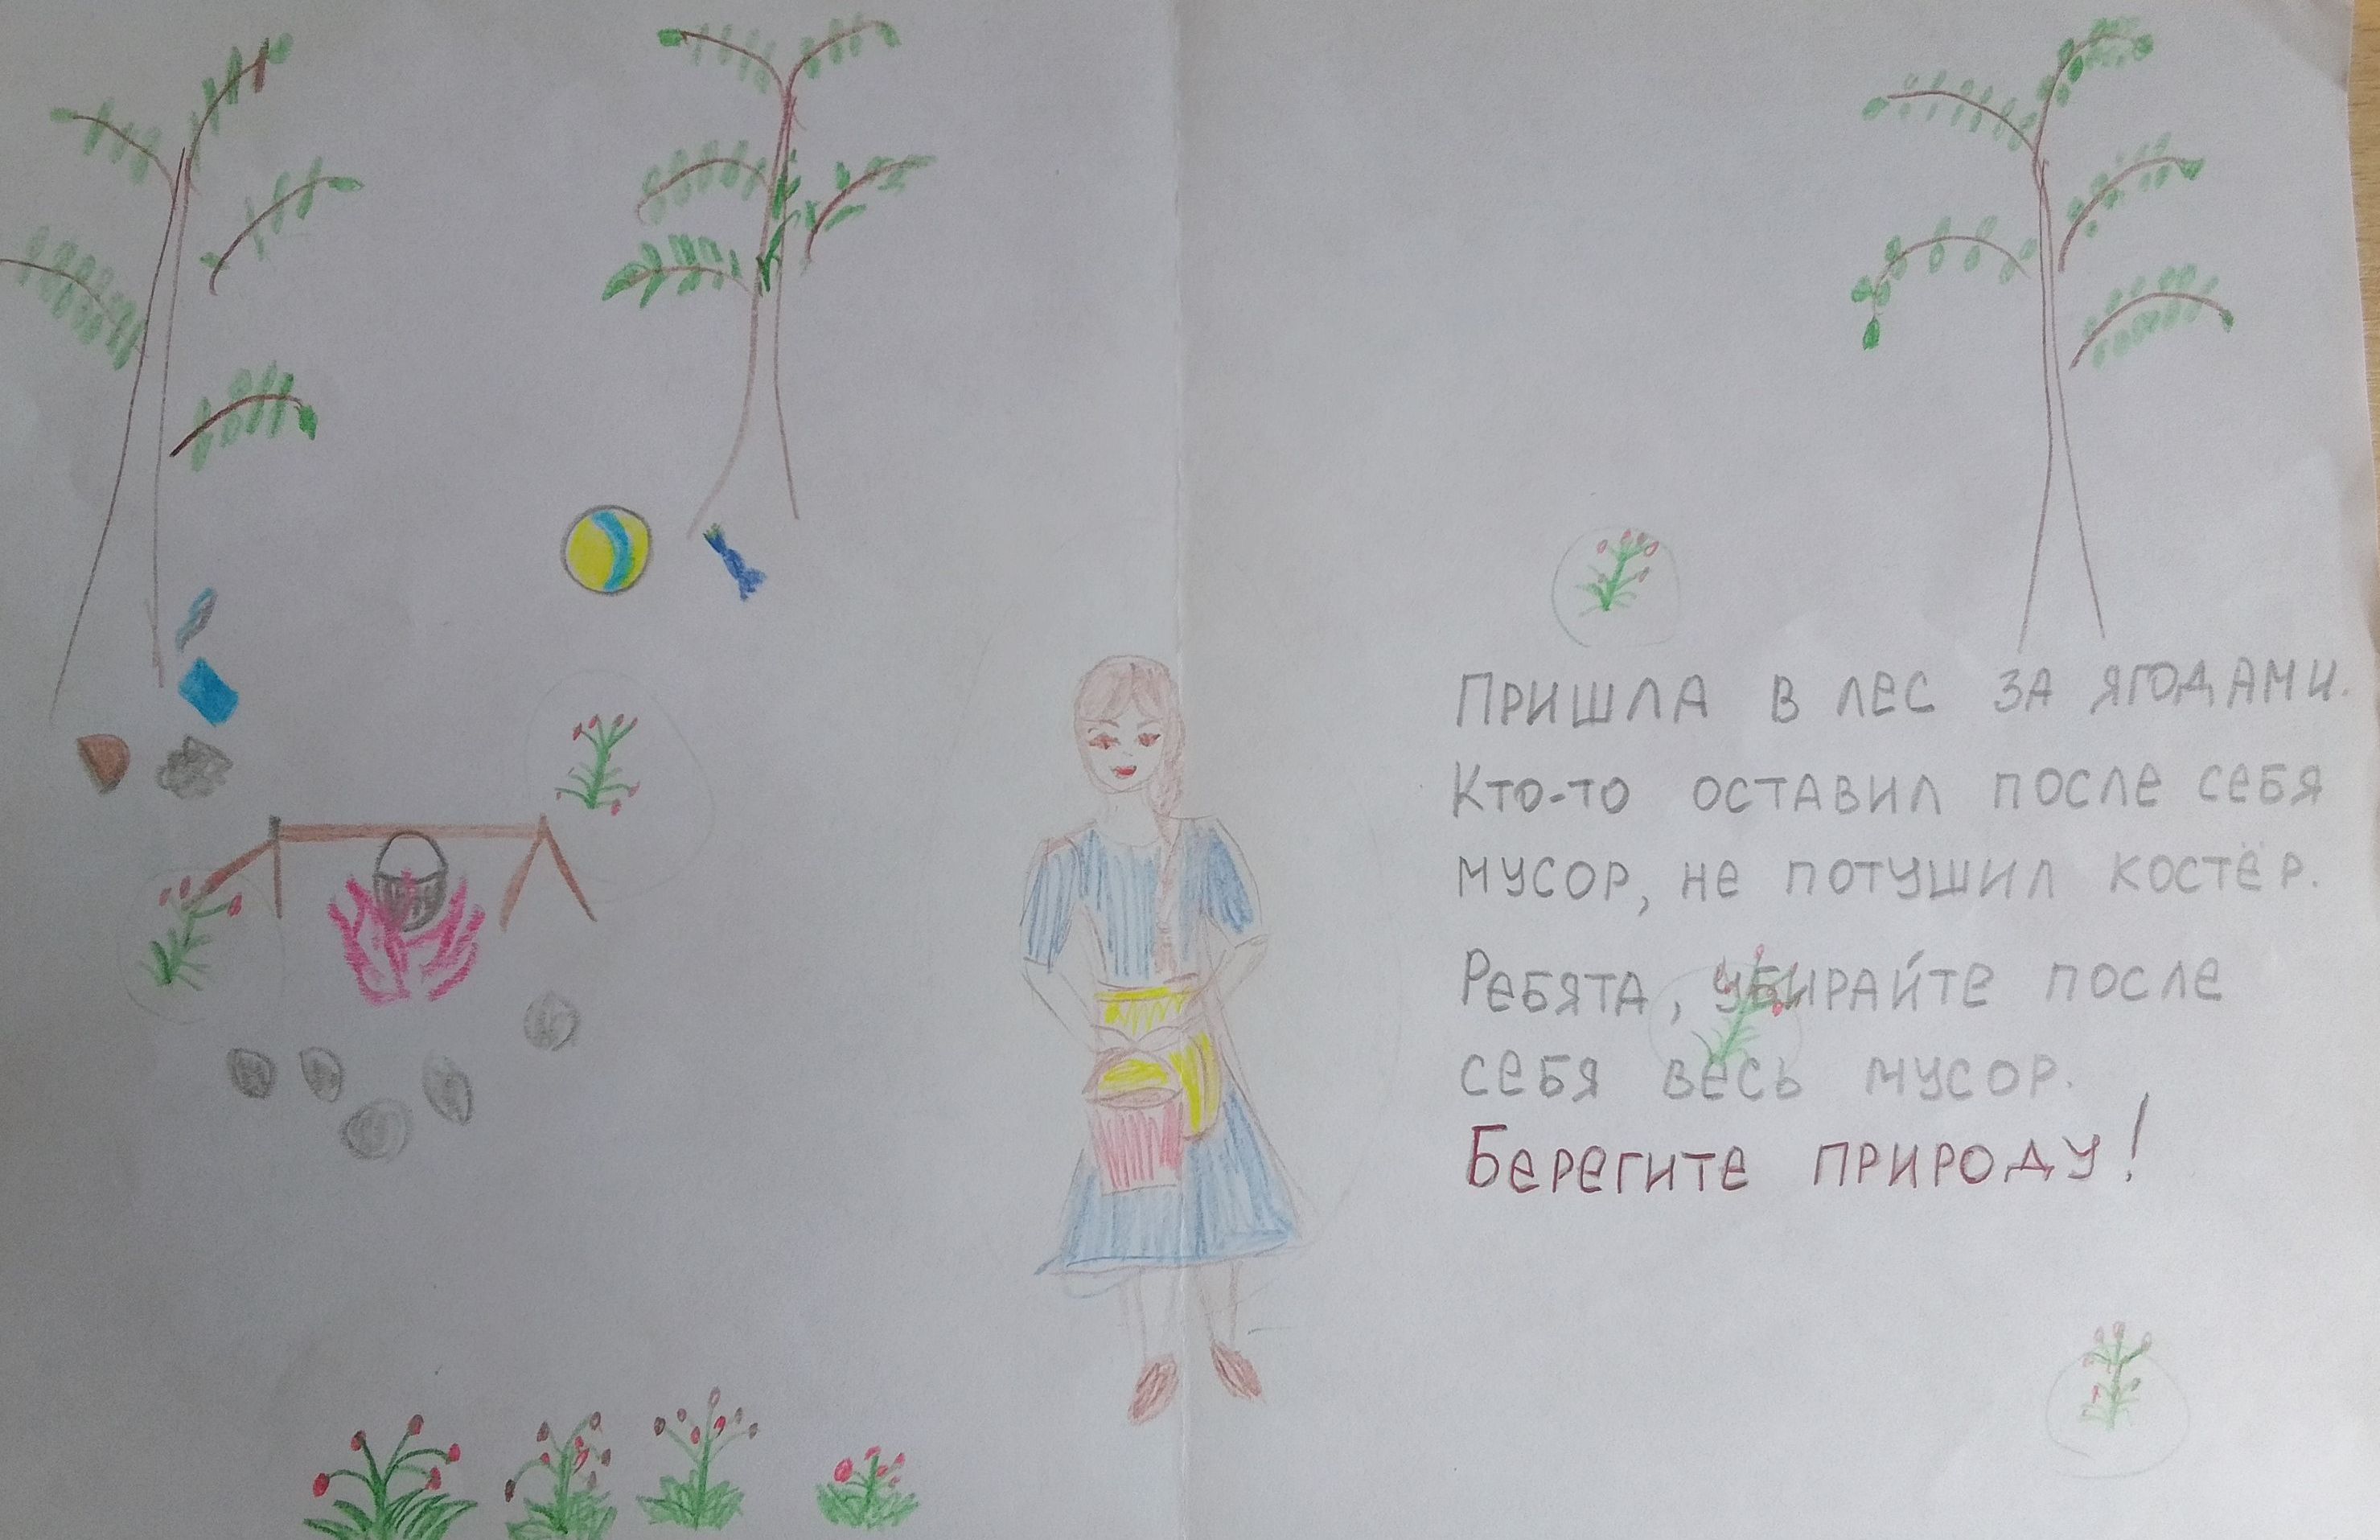 Пришла в лес за ягодами.
Кто-то оставил после себя
мусор, не потушил костёр.
Ребята, убирайте после
себя весь мусор.
Берегите природу!